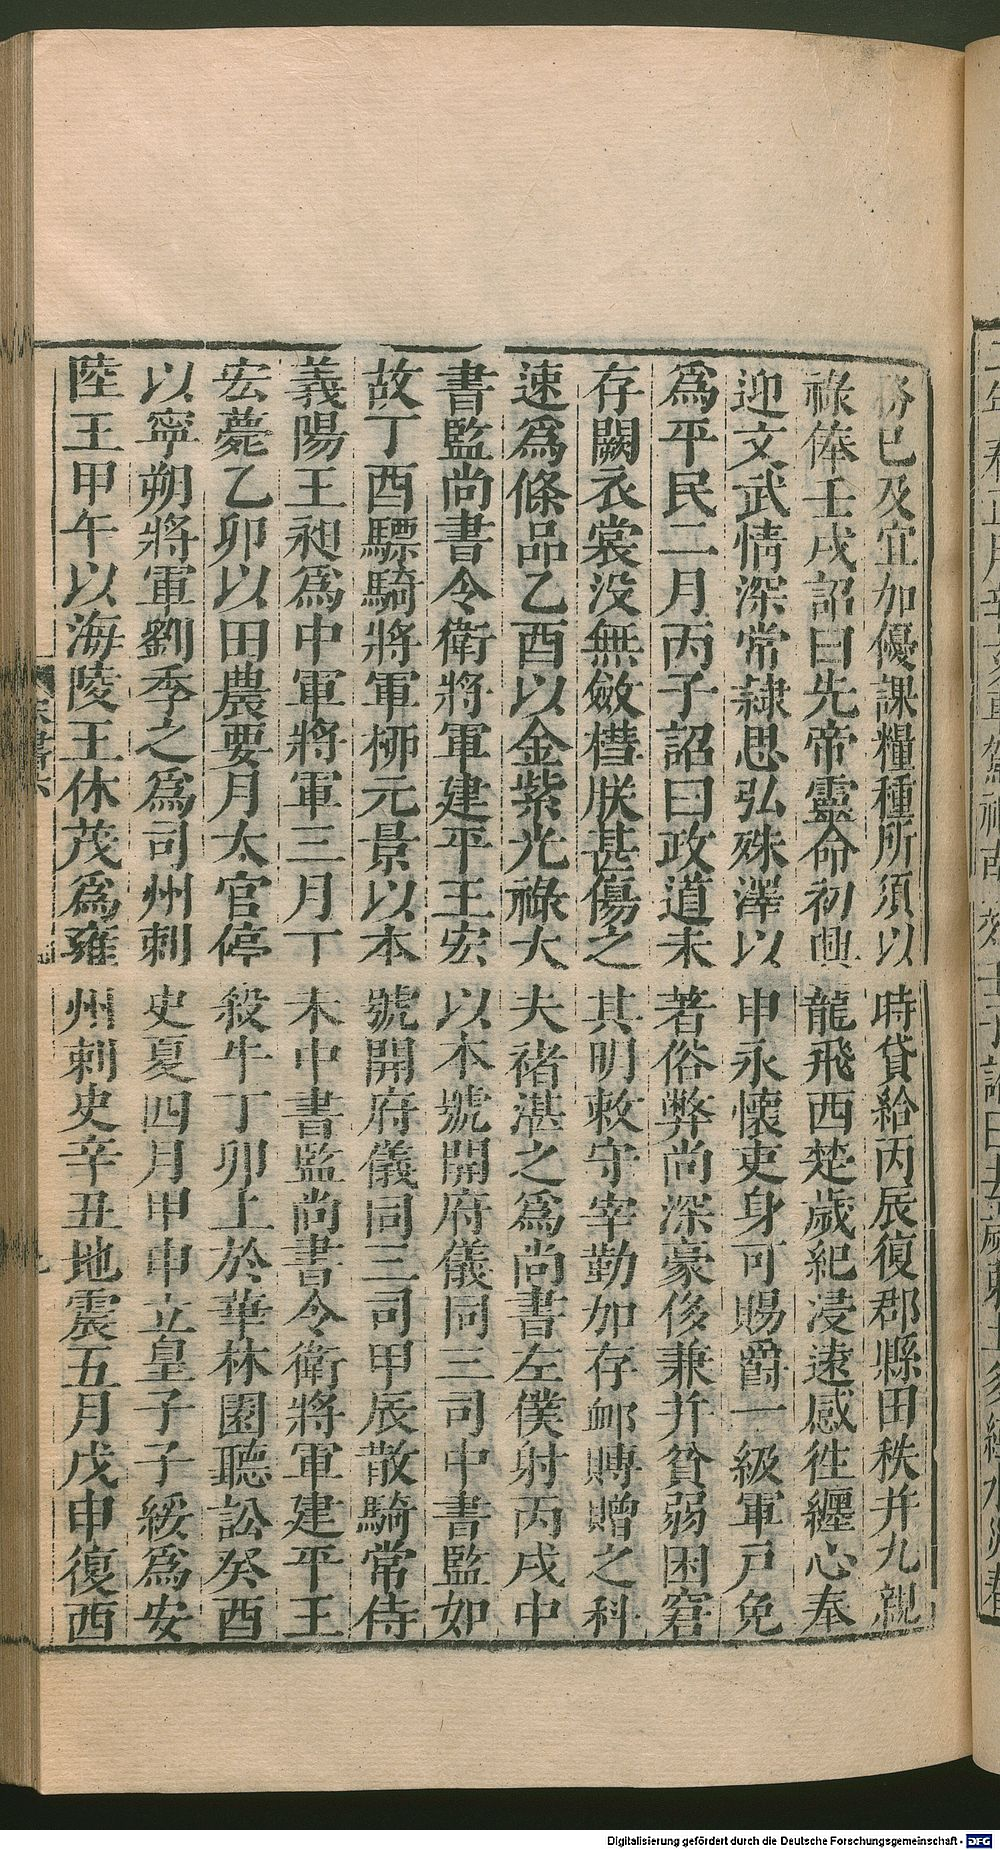 務已及宜加優課糧種所須以時貸給丙辰復郡縣田秩并九親
祿俸壬戌詔曰先帝靈命初興龍飛西楚歲紀浸遠感徃纏心奉
迎文武情深常隸思弘殊澤以申永懷吏身可賜爵一級軍戶免
爲平民二月丙子詔曰政道未著俗弊尚深豪侈兼并貧弱困窘
存闕衣裳没無斂槥朕甚傷之其明敕守宰勤加存䘏賻贈之科
速爲條品乙酉以金紫光祿大夫褚湛之爲尚書左僕射丙戌中
書監尚書令衛將軍建平王宏以本號開府儀同三司中書監如
故丁酉驃騎將軍柳元景以本號開府儀同三司甲辰散騎常侍
義陽王昶爲中軍將軍三月丁未中書監尚書令衛將軍建平王
宏薨乙卯以田農要月太官停殺牛丁卯上於華林園聽訟癸酉
以寧朔將軍劉季之爲司州刺史夏四月甲申立皇子子綏爲安
陸王甲午以海陵王休茂爲雍州刺史辛丑地震五月戊申復西
宋書六
九
Digitalisierung gefördert durch die Deutsche Forschungsgemeinschaft - DFG